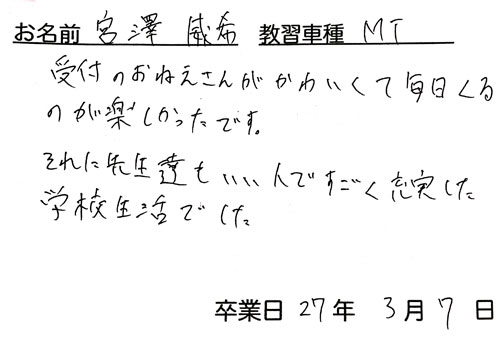 お名前 宮澤 威希 教習車種 MT
受付のおねえさんがかわいくて毎日くる
のが楽しかったです。
それに先生達もいい人ですごく充実した
学校生活でした
卒業日 27年 3月 7日